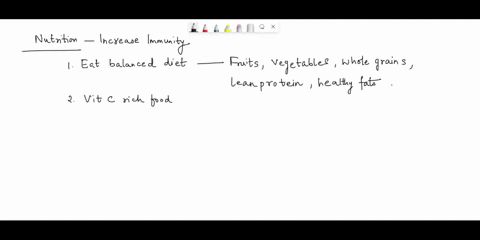 Nutrition — Increase Immunity
1. Eat balanced diet —— Fruits, vegetables, whole grains,
lean protein, healthy fats.
2. Vit C rich food